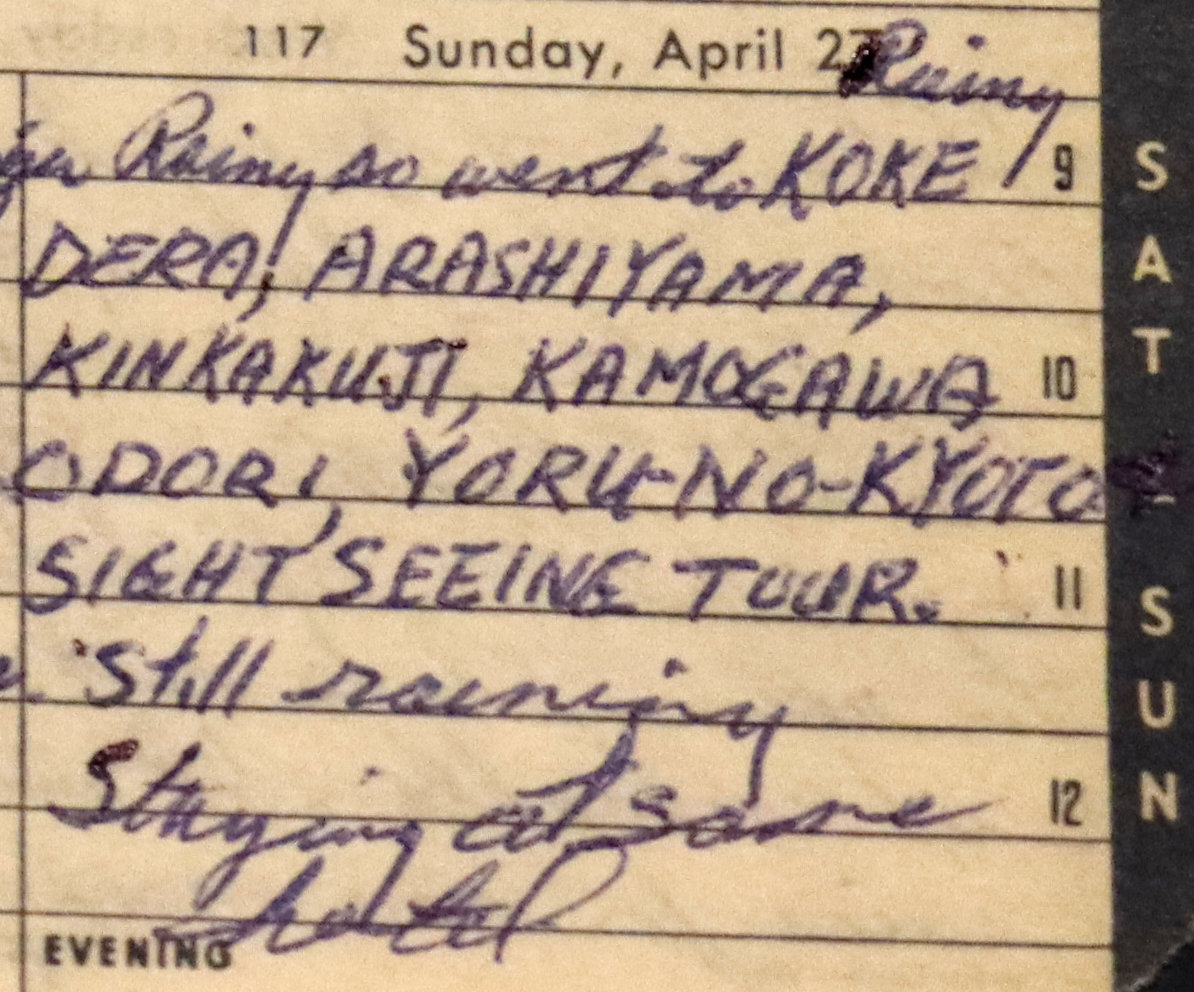 117 Sunday, April 27 Rainy
Rainy so went to KOKE 9
DERA, ARASHIYAMA,
KINKAKUJI, KAMOGAWA 10
ODORI, YORU-NO-KYOTO
SIGHT SEEING TOUR. 11
Still raining
Staying at same 12
hotel
EVENING
SAT - SUN